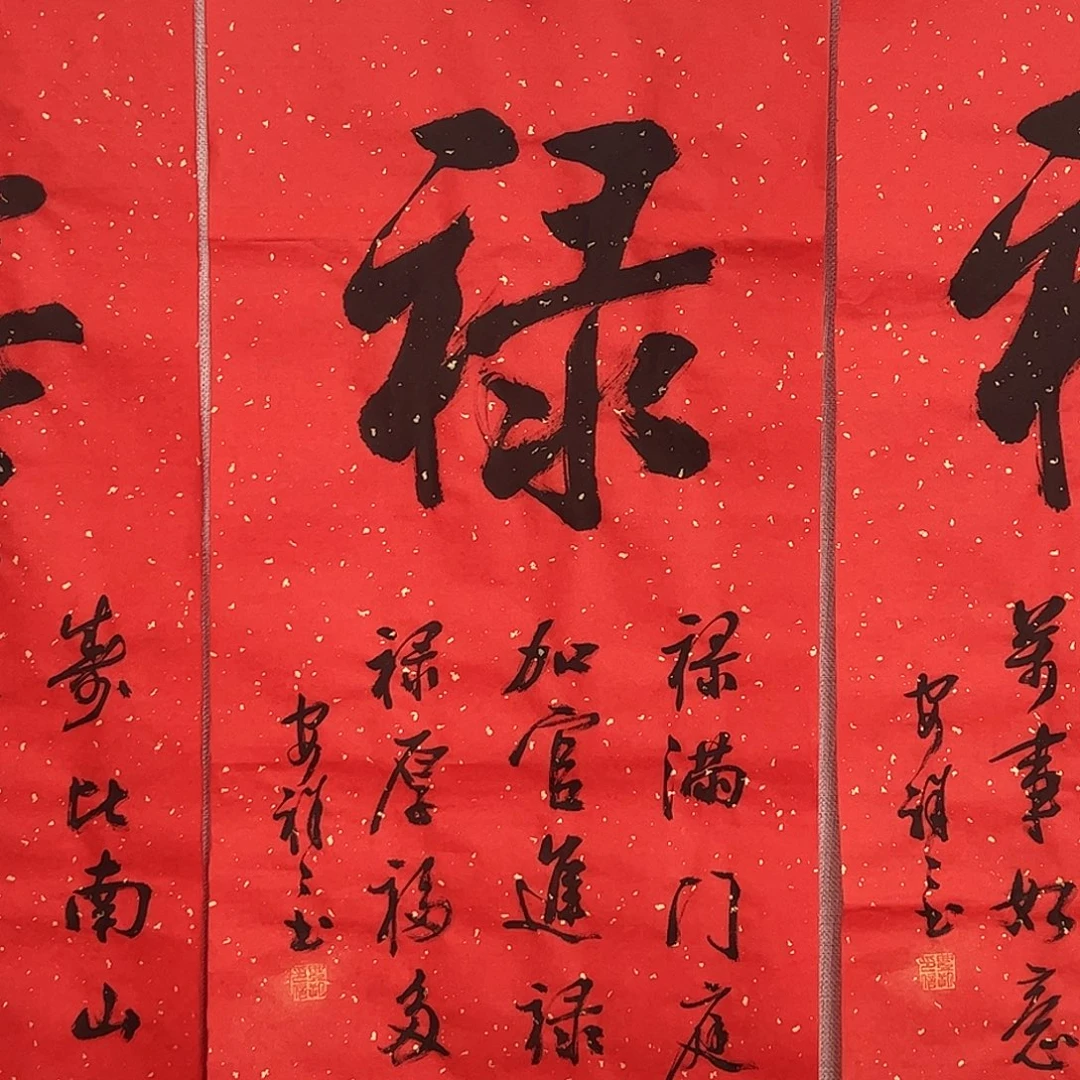 万事如意
安祥之书
禄
禄满门庭
加官進禄
禄厚福多
安祥之书
寿比南山